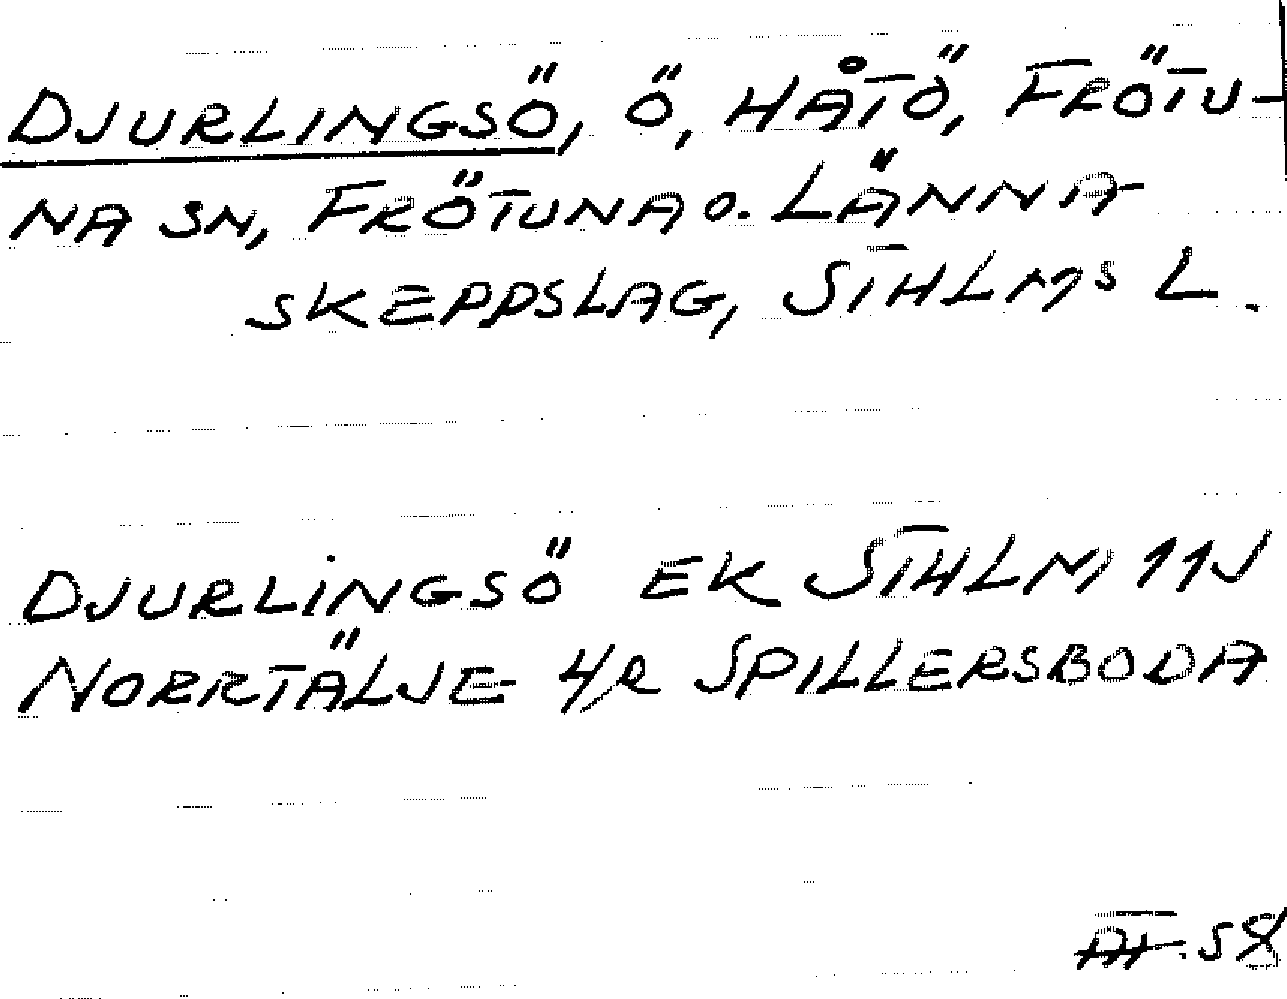 DJURLINGSÖ, Ö, HÅTÖ, FRÖTU-
NA SN, FRÖTUNA O. LÄNNA
SKEPPSLAG, STHLMS L.
DJURLINGSÖ EK STHLM 11J
NORRTÄLJE 4/R SPILLERSBODA
58